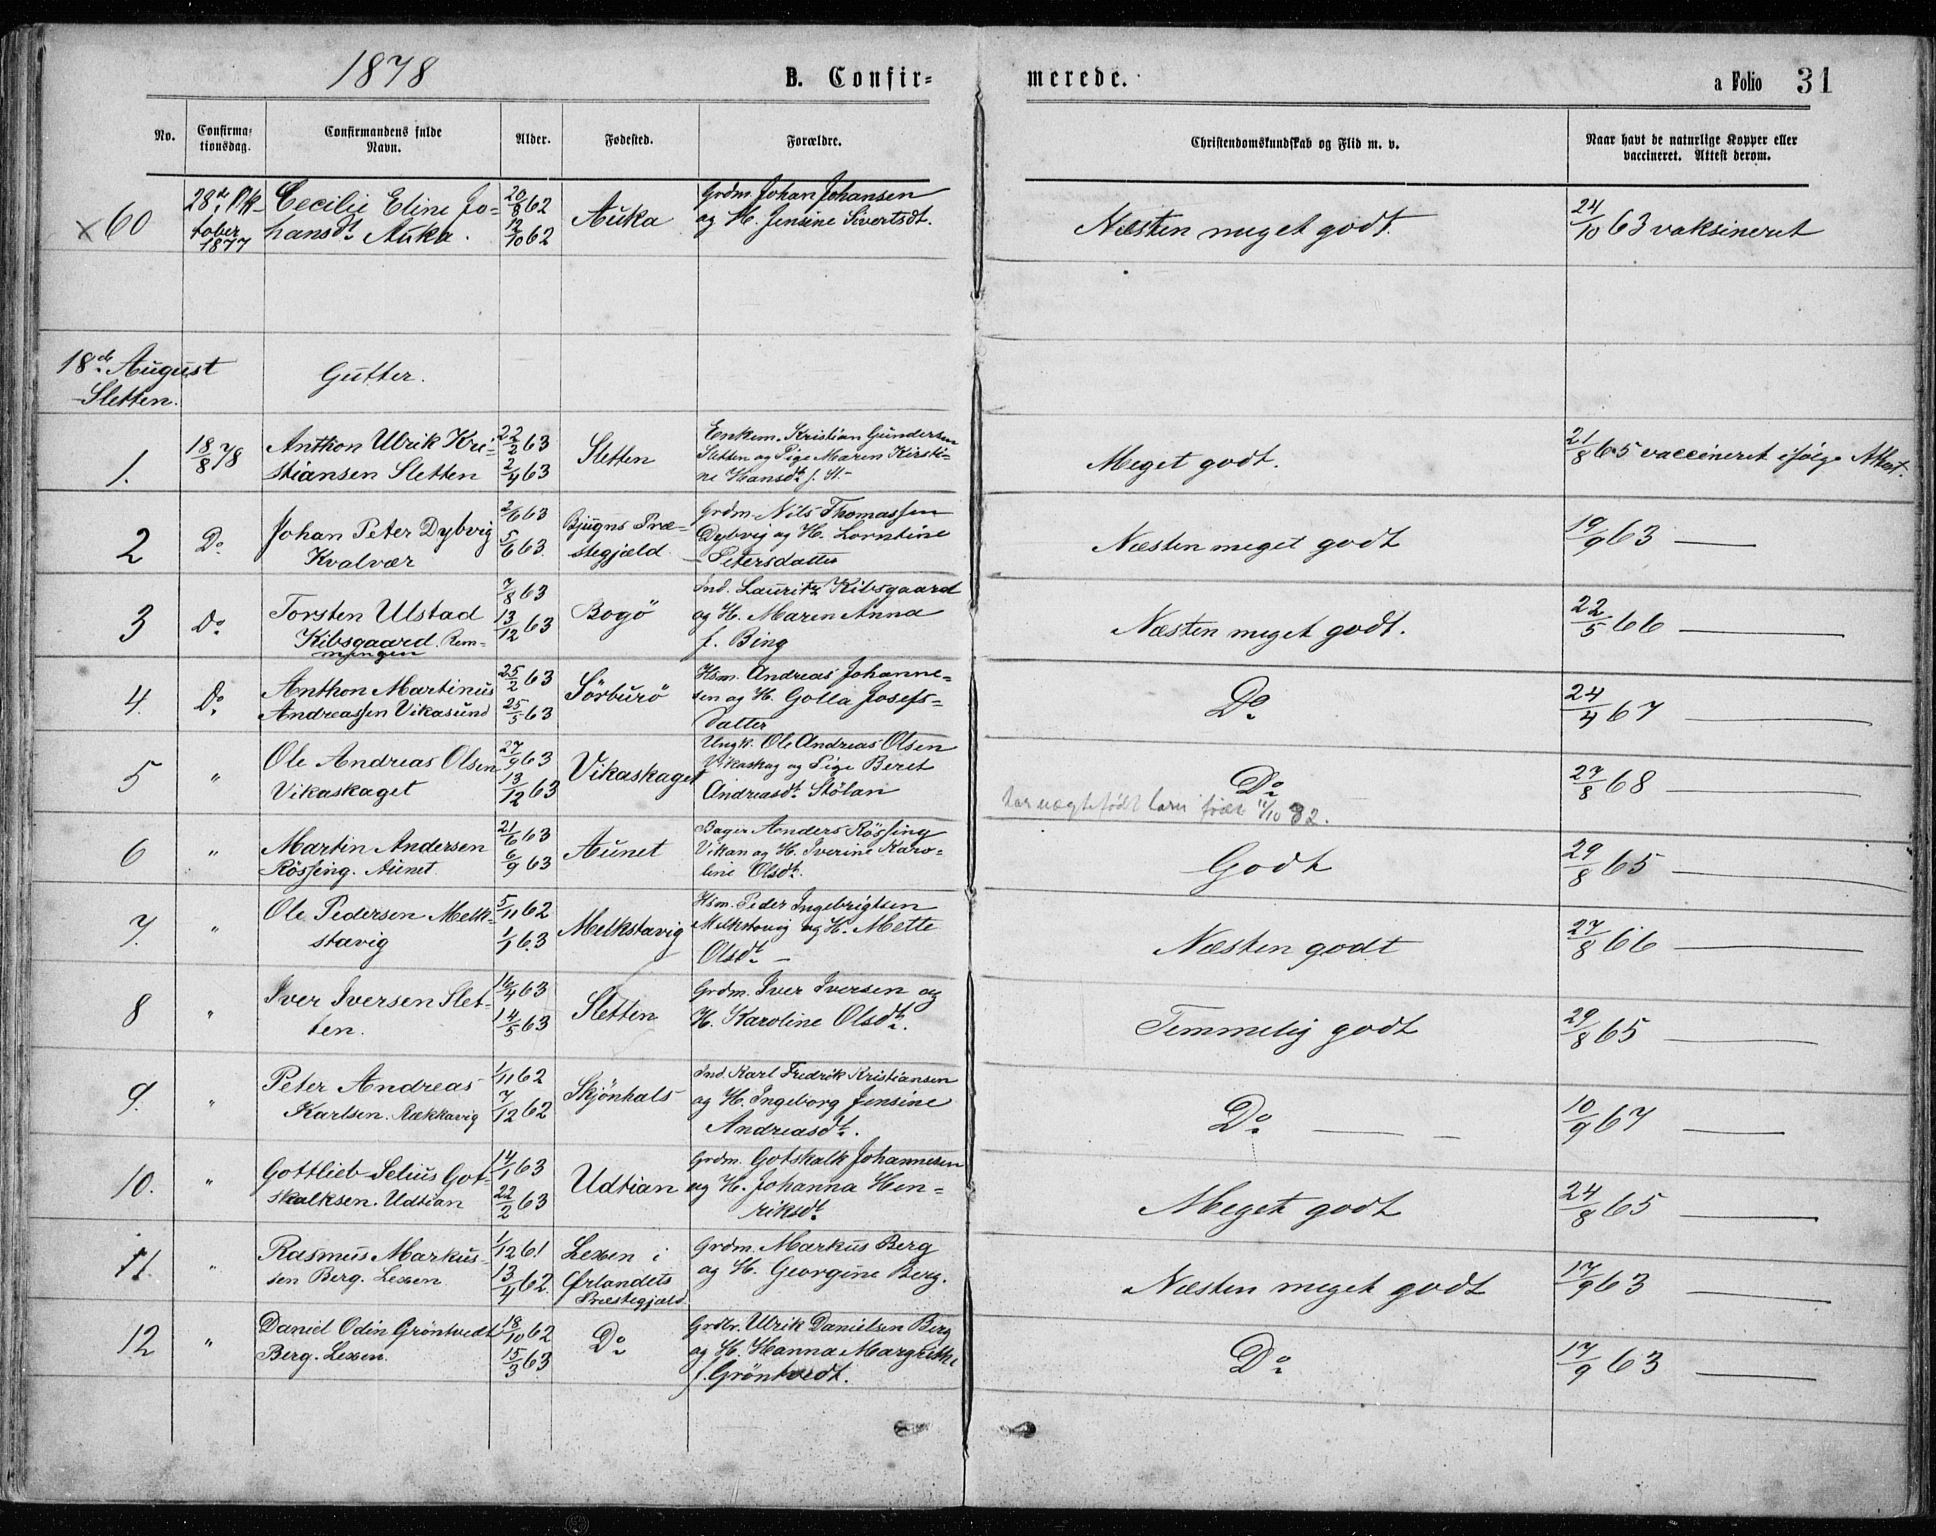 1878 B. Confir= merede. a Folio 31
No. Confirma= tionsdag. Confirmandens fulde Navn. Alder. Fødested. Forældre. Christendomskundskab og Flid m. v. Naar havt de naturlige Kopper eller vaccineret. Attest derom.
× 60 28de Ok- 20/8 62 Grdm. Johan Johansen
tober 1877 Cecilie Eline Jo= hansdt. Auka. 12/10 62 Auka og H. Jensine Sivertsdt. Næsten meget godt. 24/10 63 vaksineret
18de August
Sletten. Gutter.
1. 18/8 78 Anthon Ulrik Kri= 22/2 63 Enkem. Kristian Gundersen
stiansen Sletten 2/4 63 Sletten Sletten og Pige Maren Kirsti=
ne Hansdt. Meget godt. 21/8 65 vaccineret ifølge Attest.
2 Do Johan Peter Dybvig 2/6 63 Bjugns Præ= Grdm. Nils Thomassen
Kvalvær 5/6 63 stegjæld Dybvig og H. Lorntine
Petersdatter Næsten meget godt 19/9 63 —
3 Do Torsten Ulstad 7/8 63 Bogö Ind. Lauritz Kibsgaard
Kibsgaard. Rem= 13/12 63 og H. Maren Anna
mingen f. Bing Næsten meget godt. 22/5 66 —
4. Do Anthon Martinus 25/2 63 Sörburö Hsm. Andreas Johanne=
Andreassen Vikasund 25/5 63 sen og H. Golla Josefs=
datter Do 24/4 67 —
5 " Ole Andreas Olsen 27/9 63 Vikaskaget Ungk. Ole Andreas Olsen
Vikaskaget 13/12 63 Vikaskag og Pige Beret
Andreasdt. Stölan Do 27/8 68 —
11/10 82.
6 " Martin Andersen 21/6 63 Aunet Bager Anders Rössing
Rössing. Aunet. 6/9 63 Vikan og H. Iverine Karo=
line Olsdt. Godt 29/8 65 —
7. " Ole Pedersen Melk= 5/11 62 Melkstavig Hsm. Peder Ingebrigtsen
stavig 1/1 63 Melkstavig og H. Mette
Olsdt. — Næsten godt 27/8 66 —
8 " Iver Iversen Slet= 16/4 63 Sletten Grdm. Iver Iversen og
ten. 14/5 63 H. Karoline Olsdt. Temmelig godt 29/8 65 —
9. " Peter Andreas 1/11 62 Skjönhals Ind. Karl Fredrik Kristiansen
Karlsen. Rækkavig 7/12 62 og H. Ingeborg Jensine
Andreasdt. Do — — 10/9 67 —
10. " Gottlieb Selius Got= 14/1 63 Udtian Grdm. Gotskalk Johannesen
skalksen. Udtian 22/2 63 og H. Johanna Hen=
riksdt. Meget godt 24/8 65 —
11. " Rasmus Markus= 1/12 61 Lexen i Grdm. Markus Berg
sen Berg. Lexen. 13/4 62. Ørlandets og H. Georgine Berg.
Præstegjæld Næsten meget godt 17/9 63 —
12 " Daniel Odin Gröntvedt 18/10 62 Do Ulrik Danielsen Berg
Berg. Lexen. 15/3 63 og H. Hanna Margrethe
f. Gröntvedt. Do 17/9 63 —